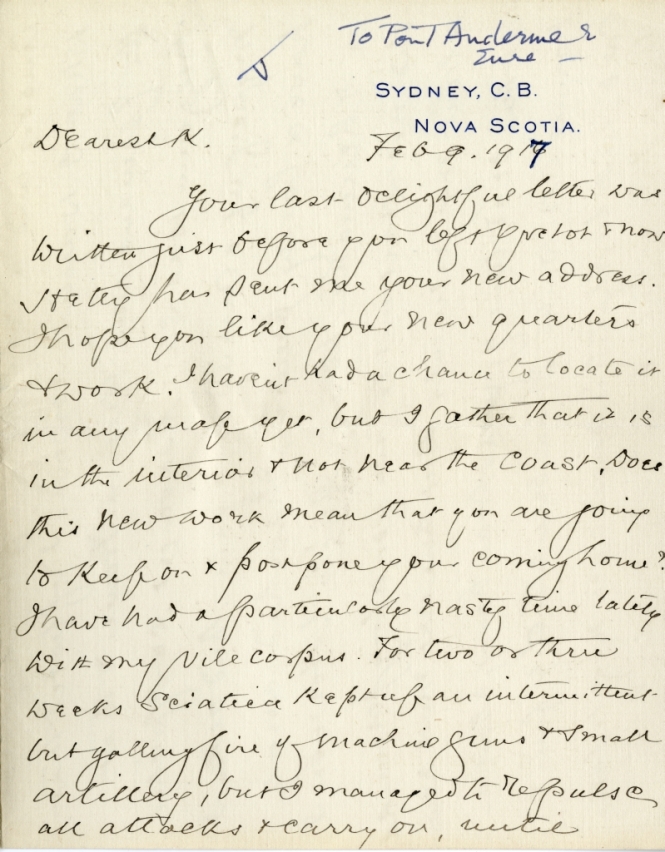 To Pont Andemer
Eure —
SYDNEY, C. B.
NOVA SCOTIA.
Dearest K.
Feb 9. 1917
Your last delightful letter was
written just before you left & now
has sent me your new address.
I hope you like your new quarters
& work. I havent had a chance to locate it
in any map yet, but I gather that it is
in the interior & not near the coast. Does
this new work mean that you are going
to keep on & postpone your coming home?
I have had a particularly nasty time lately
with my vile corpus. For two or three
weeks Sciatica kept up an intermittent
but galling fire of machine guns & small
artillery, but I managed to repulse
all attacks & carry on, until